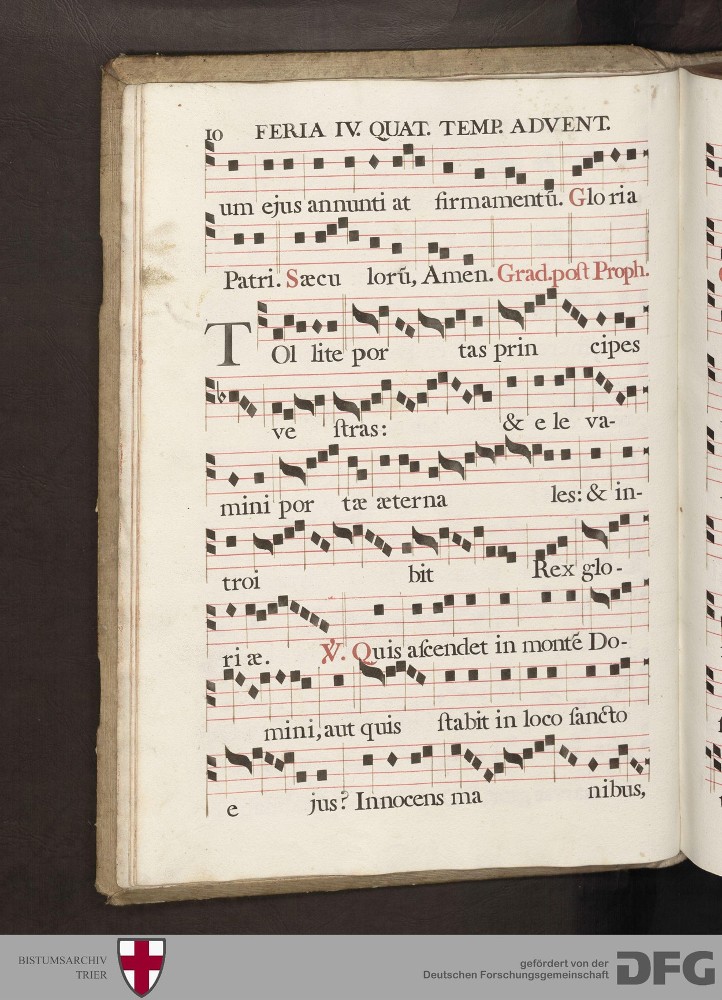 10 FERIA IV. QUAT. TEMP. ADVENT.
um ejus annunti at firmamentū. Glo ria
Patri. Sæcu lorū, Amen. Grad. poſt Proph.
TOl lite por tas prin cipes
ve ſtras: & e le va-
mini por tæ æterna les: & in-
troi bit Rex glo-
ri æ. ℣. Quis aſcendet in monté Do-
mini, aut quis ſtabit in loco ſancto
e jus? Innocens ma nibus,
BISTUMSARCHIV
TRIER
gefördert von der
Deutschen Forschungsgemeinschaft
DFG